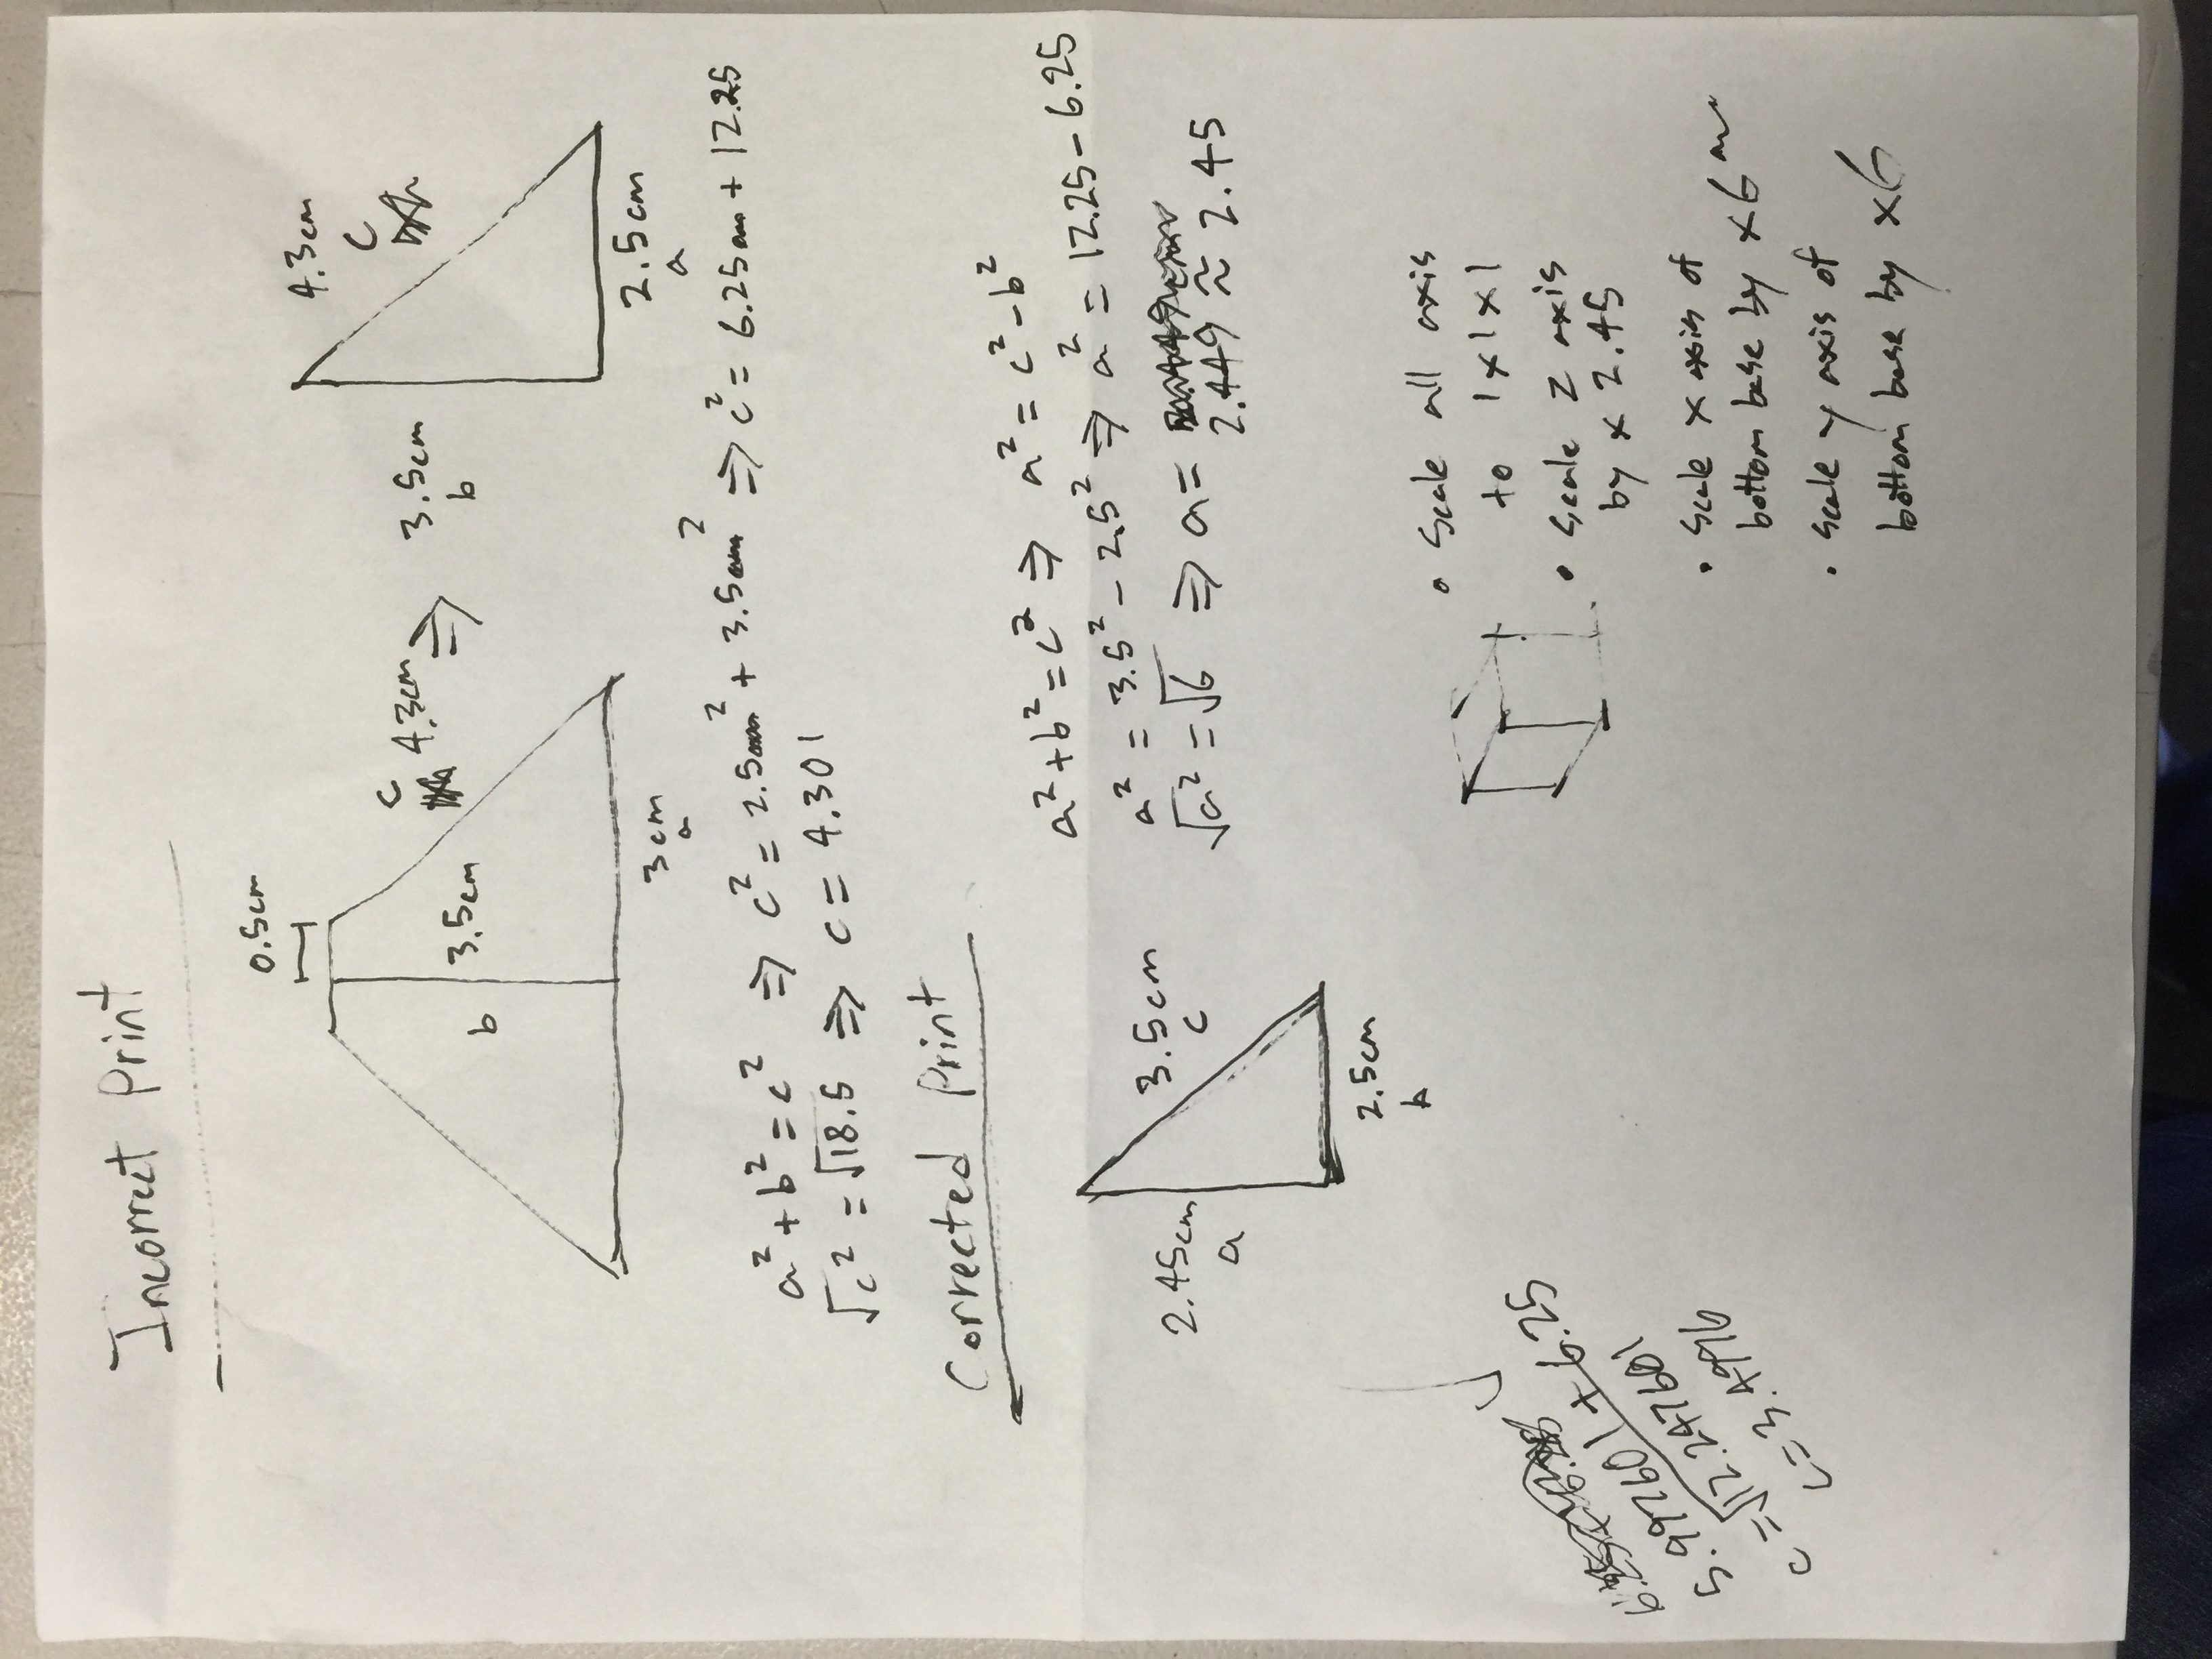 Incorrect Print
0.5cm
b
3.5cm
c
4.3cm
⇒
3cm
a
4.3cm
c
3.5cm
b
2.5cm
a
a² + b² = c² ⇒ c² = 2.5² + 3.5² ⇒ c² = 6.25 + 12.25
√c² = √18.5 ⇒ c = 4.301
Corrected Print
2.45cm
a
3.5cm
c
2.5cm
b
a² + b² = c² ⇒ a² = c² - b²
a² = 3.5² - 2.5² ⇒ a² = 12.25 - 6.25
√a² = √6 ⇒ a =
2.449 ≈ 2.45
5.997601 + 6.25
c = √12.247601
c = 3.4996
• Scale all axis
to 1x1x1
• Scale Z axis
by x 2.45
• Scale X axis of
bottom base by x6
• Scale y axis of
bottom base by x6